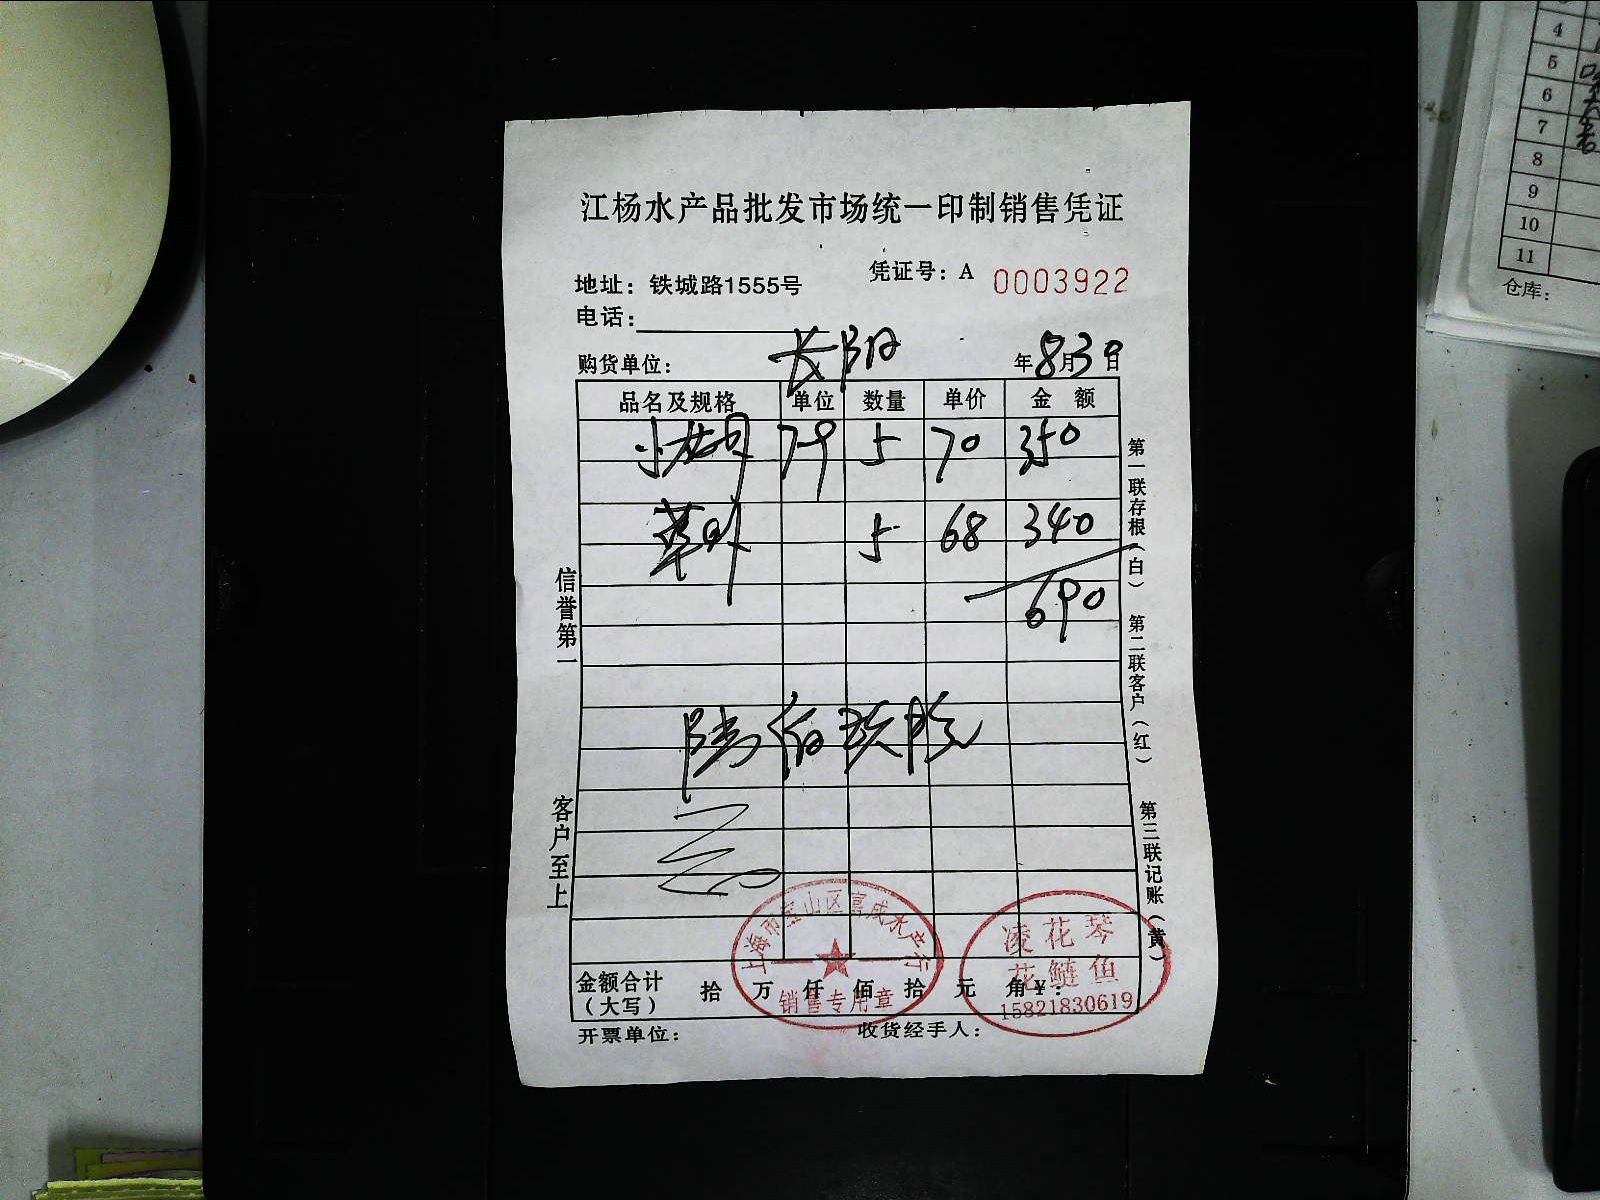 江杨水产品批发市场统一印制销售凭证
凭证号：A 0003922
地址：铁城路1555号
电话：
购货单位：长阳 年8月30日
品名及规格 单位 数量 单价 金 额
5 70 350
5 68 340
690
陆佰玖拾元
金额合计（大写） 拾 万 仟 佰 拾 元 角 ¥：
开票单位： 收货经手人：
信誉第一
客户至上
第一联存根（白）
第二联客户（红）
第三联记账（黄）
上海市宝山区富成水产行
销售专用章
凌花琴
花鲢鱼
15821830619
4
5
6
7
8
9
10
11
仓库：